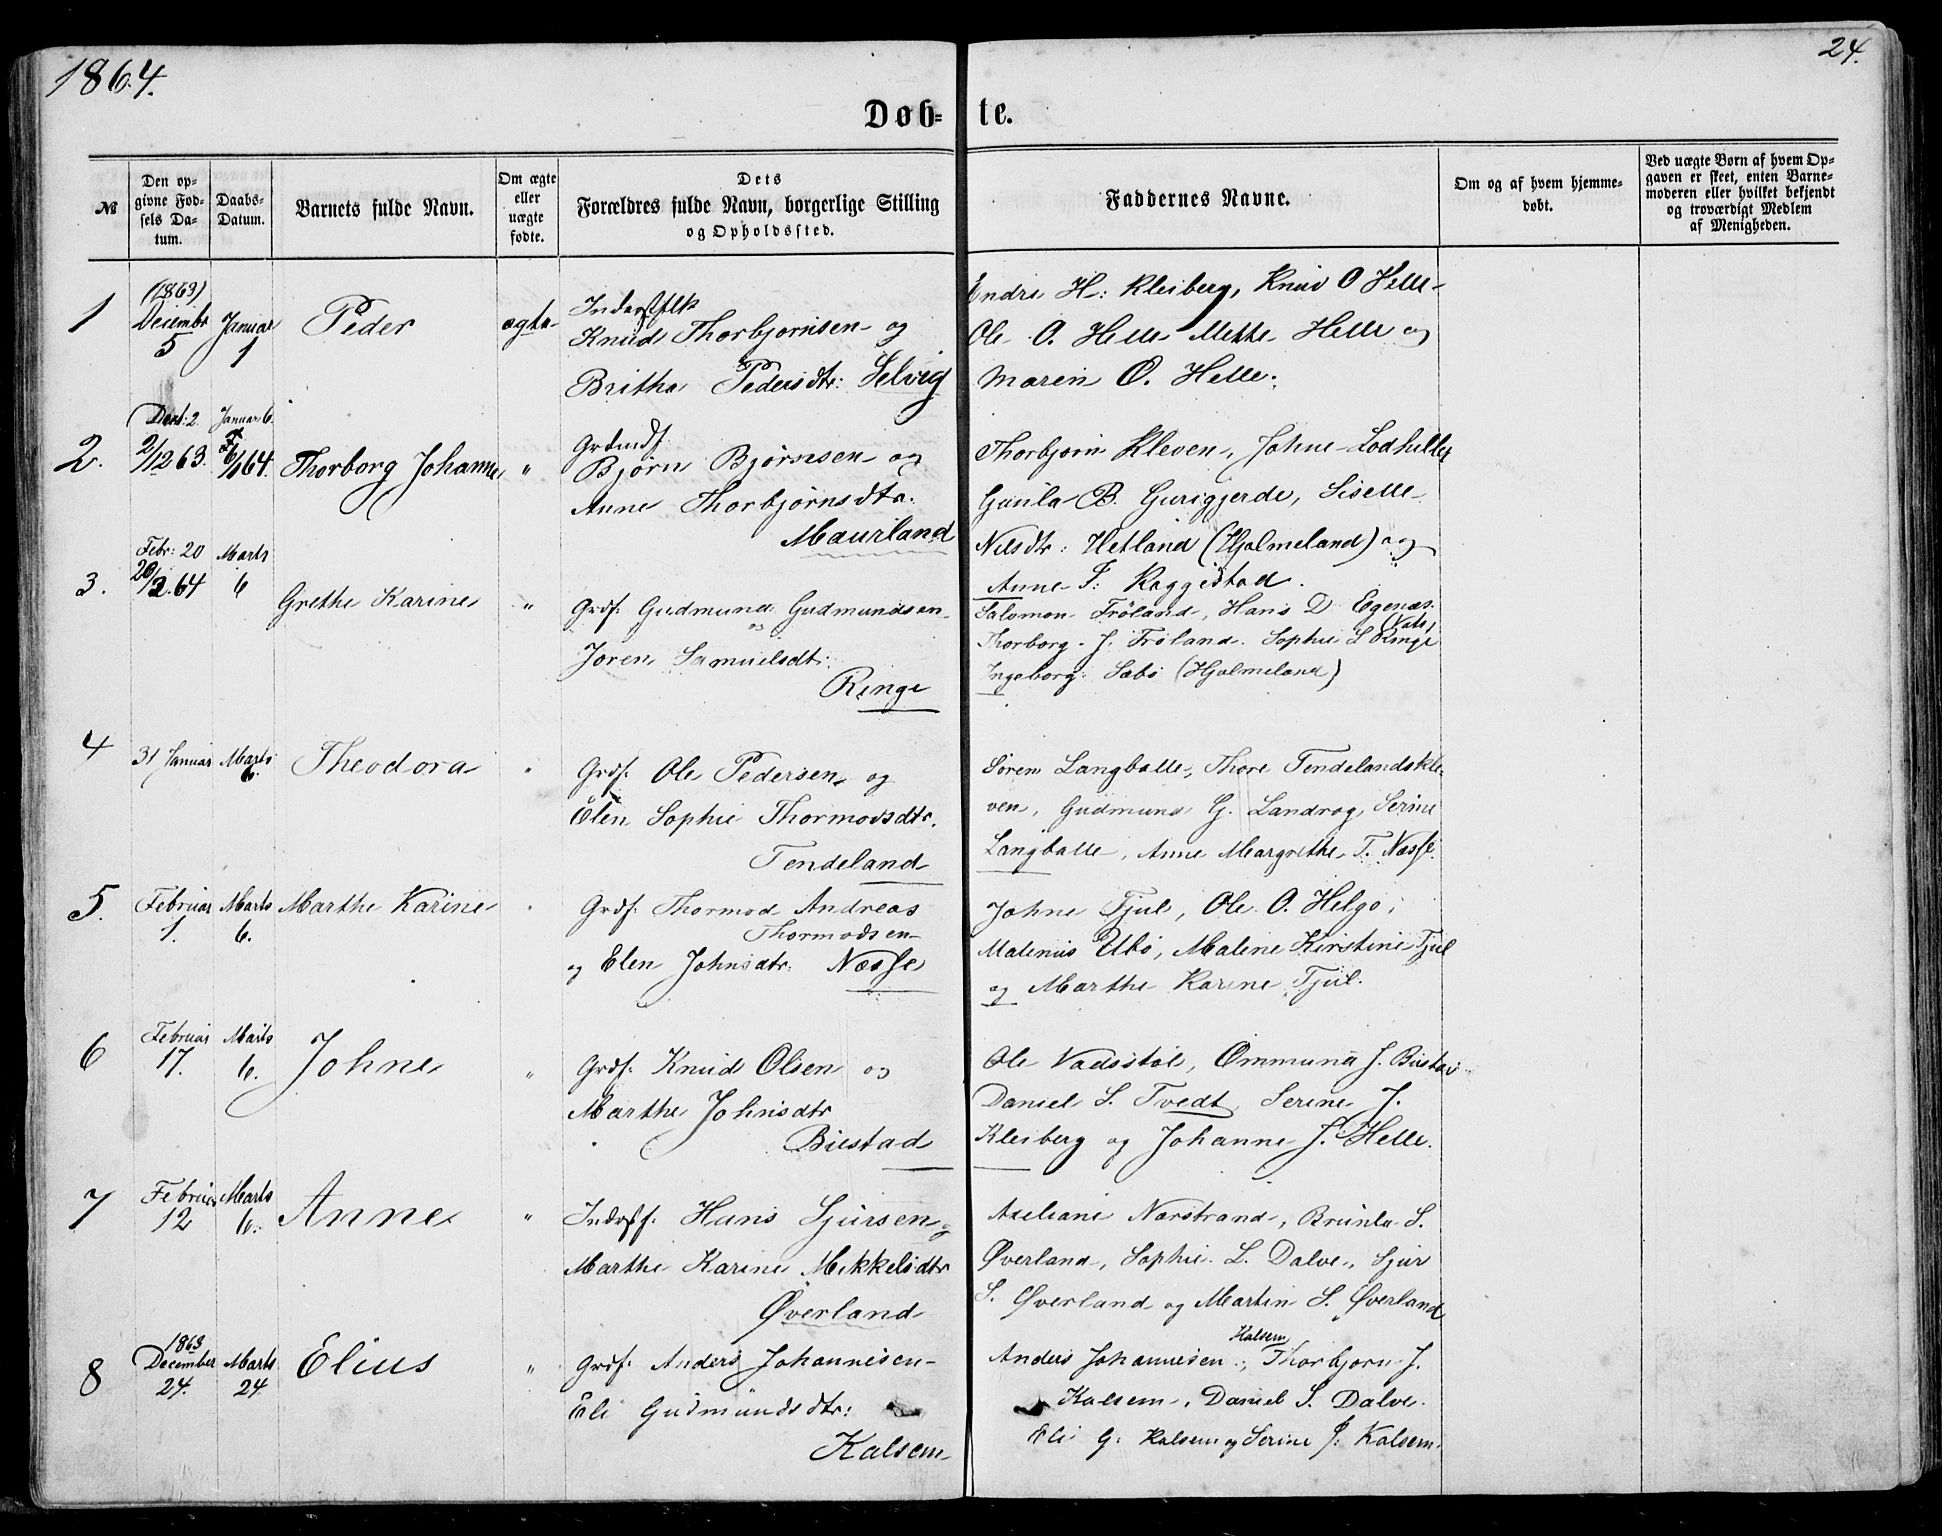 1864.
24.
Døb- te.
№
Den opgivne Fødsels Datum.
Daabs-Datum.
Barnets fulde Navn.
Om ægte eller uægte fødte.
Dets Forældres fulde Navn, borgerlige Stilling og Opholdssted.
Faddernes Navne.
Om og af hvem hjemmedøbt.
Ved uægte Børn af hvem Opgaven er skeet, enten Barnemoderen eller hvilket bekjendt og troværdigt Medlem af Menigheden.
1 (1863) Decembr 5 Januar 1 Peder ægte
Knud Thorbjørnsen og
Britha Pedersdtr: Selvig
Endre H: Kleiberg, Knud O Helle
Ole O. Helle Mette Helle og
Maren O. Helle.
2. Decbr: 2. 2/12 63. Januar 6. 6/1 64. Thorborg Johanne "
Grdmdf.
Bjørn Bjørnsen og
Anne Thorbjørnsdtr.
Maurland
Thorbjørn Kleven, Johne Lodhelle
Gunla B. Gurigjerde, Siselle
Nilsdtr: Hetland (Hjelmeland) og
Anne T: Raggestad.
3. Febr: 20 20/2.64 Marts 6 Grethe Karine "
Grdf: Gudmund Gudmundsen
og
Joren Samuelsdt:
Ringe
Salomon Frøland, Hans D Egenæs.
(Vats)
Thorborg J. Frøland. Sophie L Ringe
Ingeborg Sæbø (Hjelmeland)
4 31 Januar Marts 6. Theodora "
Grdf: Ole Pedersen og
Elen Sophie Thormodsdtr.
Tendeland
Søren Langballe, Thore Tendelandskle-
ven, Gudmund G. Landrog, Serine
Langballe, Anne Margrethe T. Næsse.
5. Februar 1. Marts 6. Marthe Karine "
Grdf: Thormod Andreas
Thormodsen
og Elen Johnsdtr: Næsse
Johne Tjul, Ole O. Helgø,
Malenius Ubø, Malene Kirstine Tjul
og Marthe Karine Tjul.
6 Februar 17. Marts 6. Johne "
Grdf: Knud Olsen og
Marthe Johnsdtr
Bustad
Ole Vadsstøl, Ommund J. Bustad
Daniel S. Tvedt, Serine J.
Kleiberg og Johanne J. Helle.
7 Februar 12 Marts 6. Anne "
Inderstf: Hans Sjursen og
Marthe Karine Mikkelsdtr
Øverland
Axeliane Narstrand, Brunla S.
Øverland, Sophie L. Dalve, Sjur
S. Øverland og Martin S. Øverland
8 1863 December 24. Marts 24 Elius "
Grdf: Anders Johannesen
Eli Gudmundsdtr:
Kalsem
Kalsem
Anders Johannesen, Thorbjørn J.
Kalsem, Daniel S. Dalve
Eli G: Kalsem og Serine J: Kalsem.